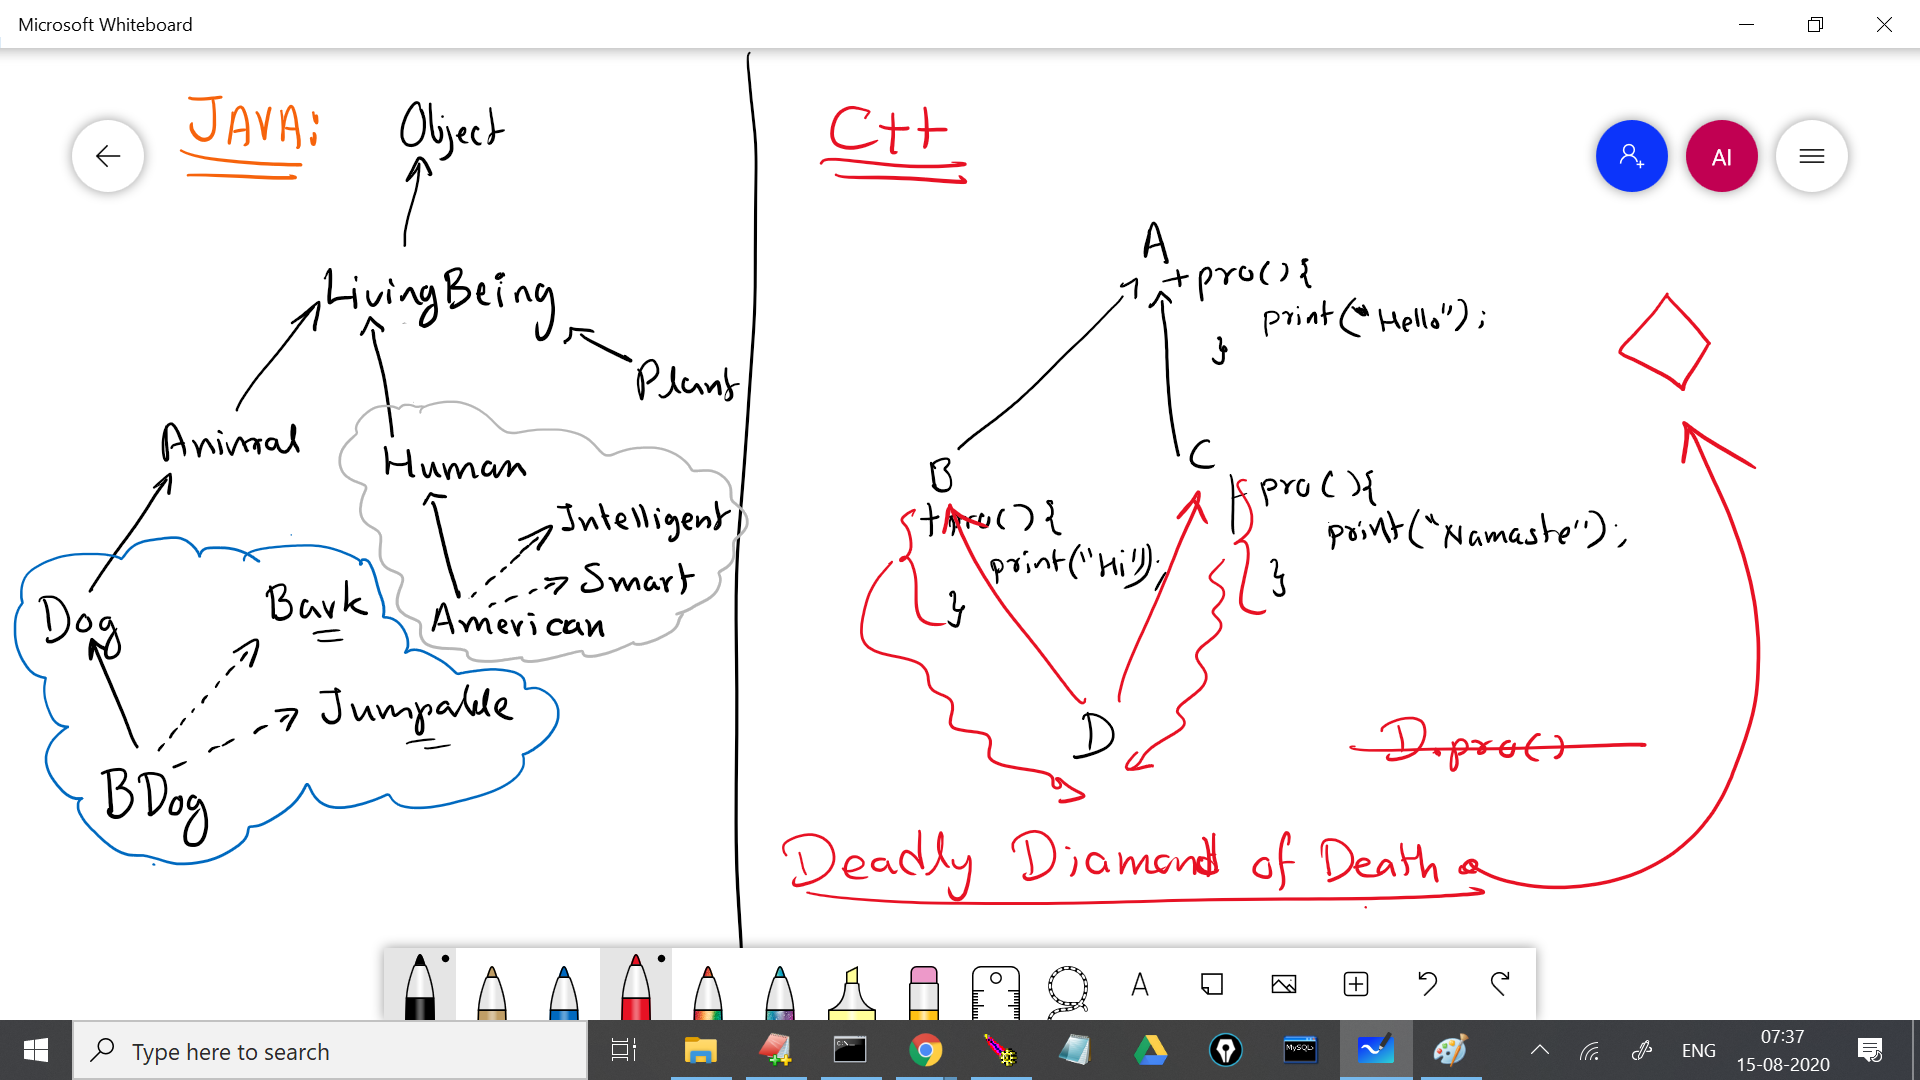 Microsoft Whiteboard
JAVA:
Object
LivingBeing
Plant
Animal
Human
Intelligent
Smart
American
Dog
Bark
Jumpable
BDog
C++
AI
A
+ pro(){
print("Hello");
}
B
+pro(){
print("Hi");
}
C
+ pro(){
print("Namaste");
}
D
D.pro()
Deadly Diamond of Death
A
Type here to search
MySQL
ENG
07:37
15-08-2020